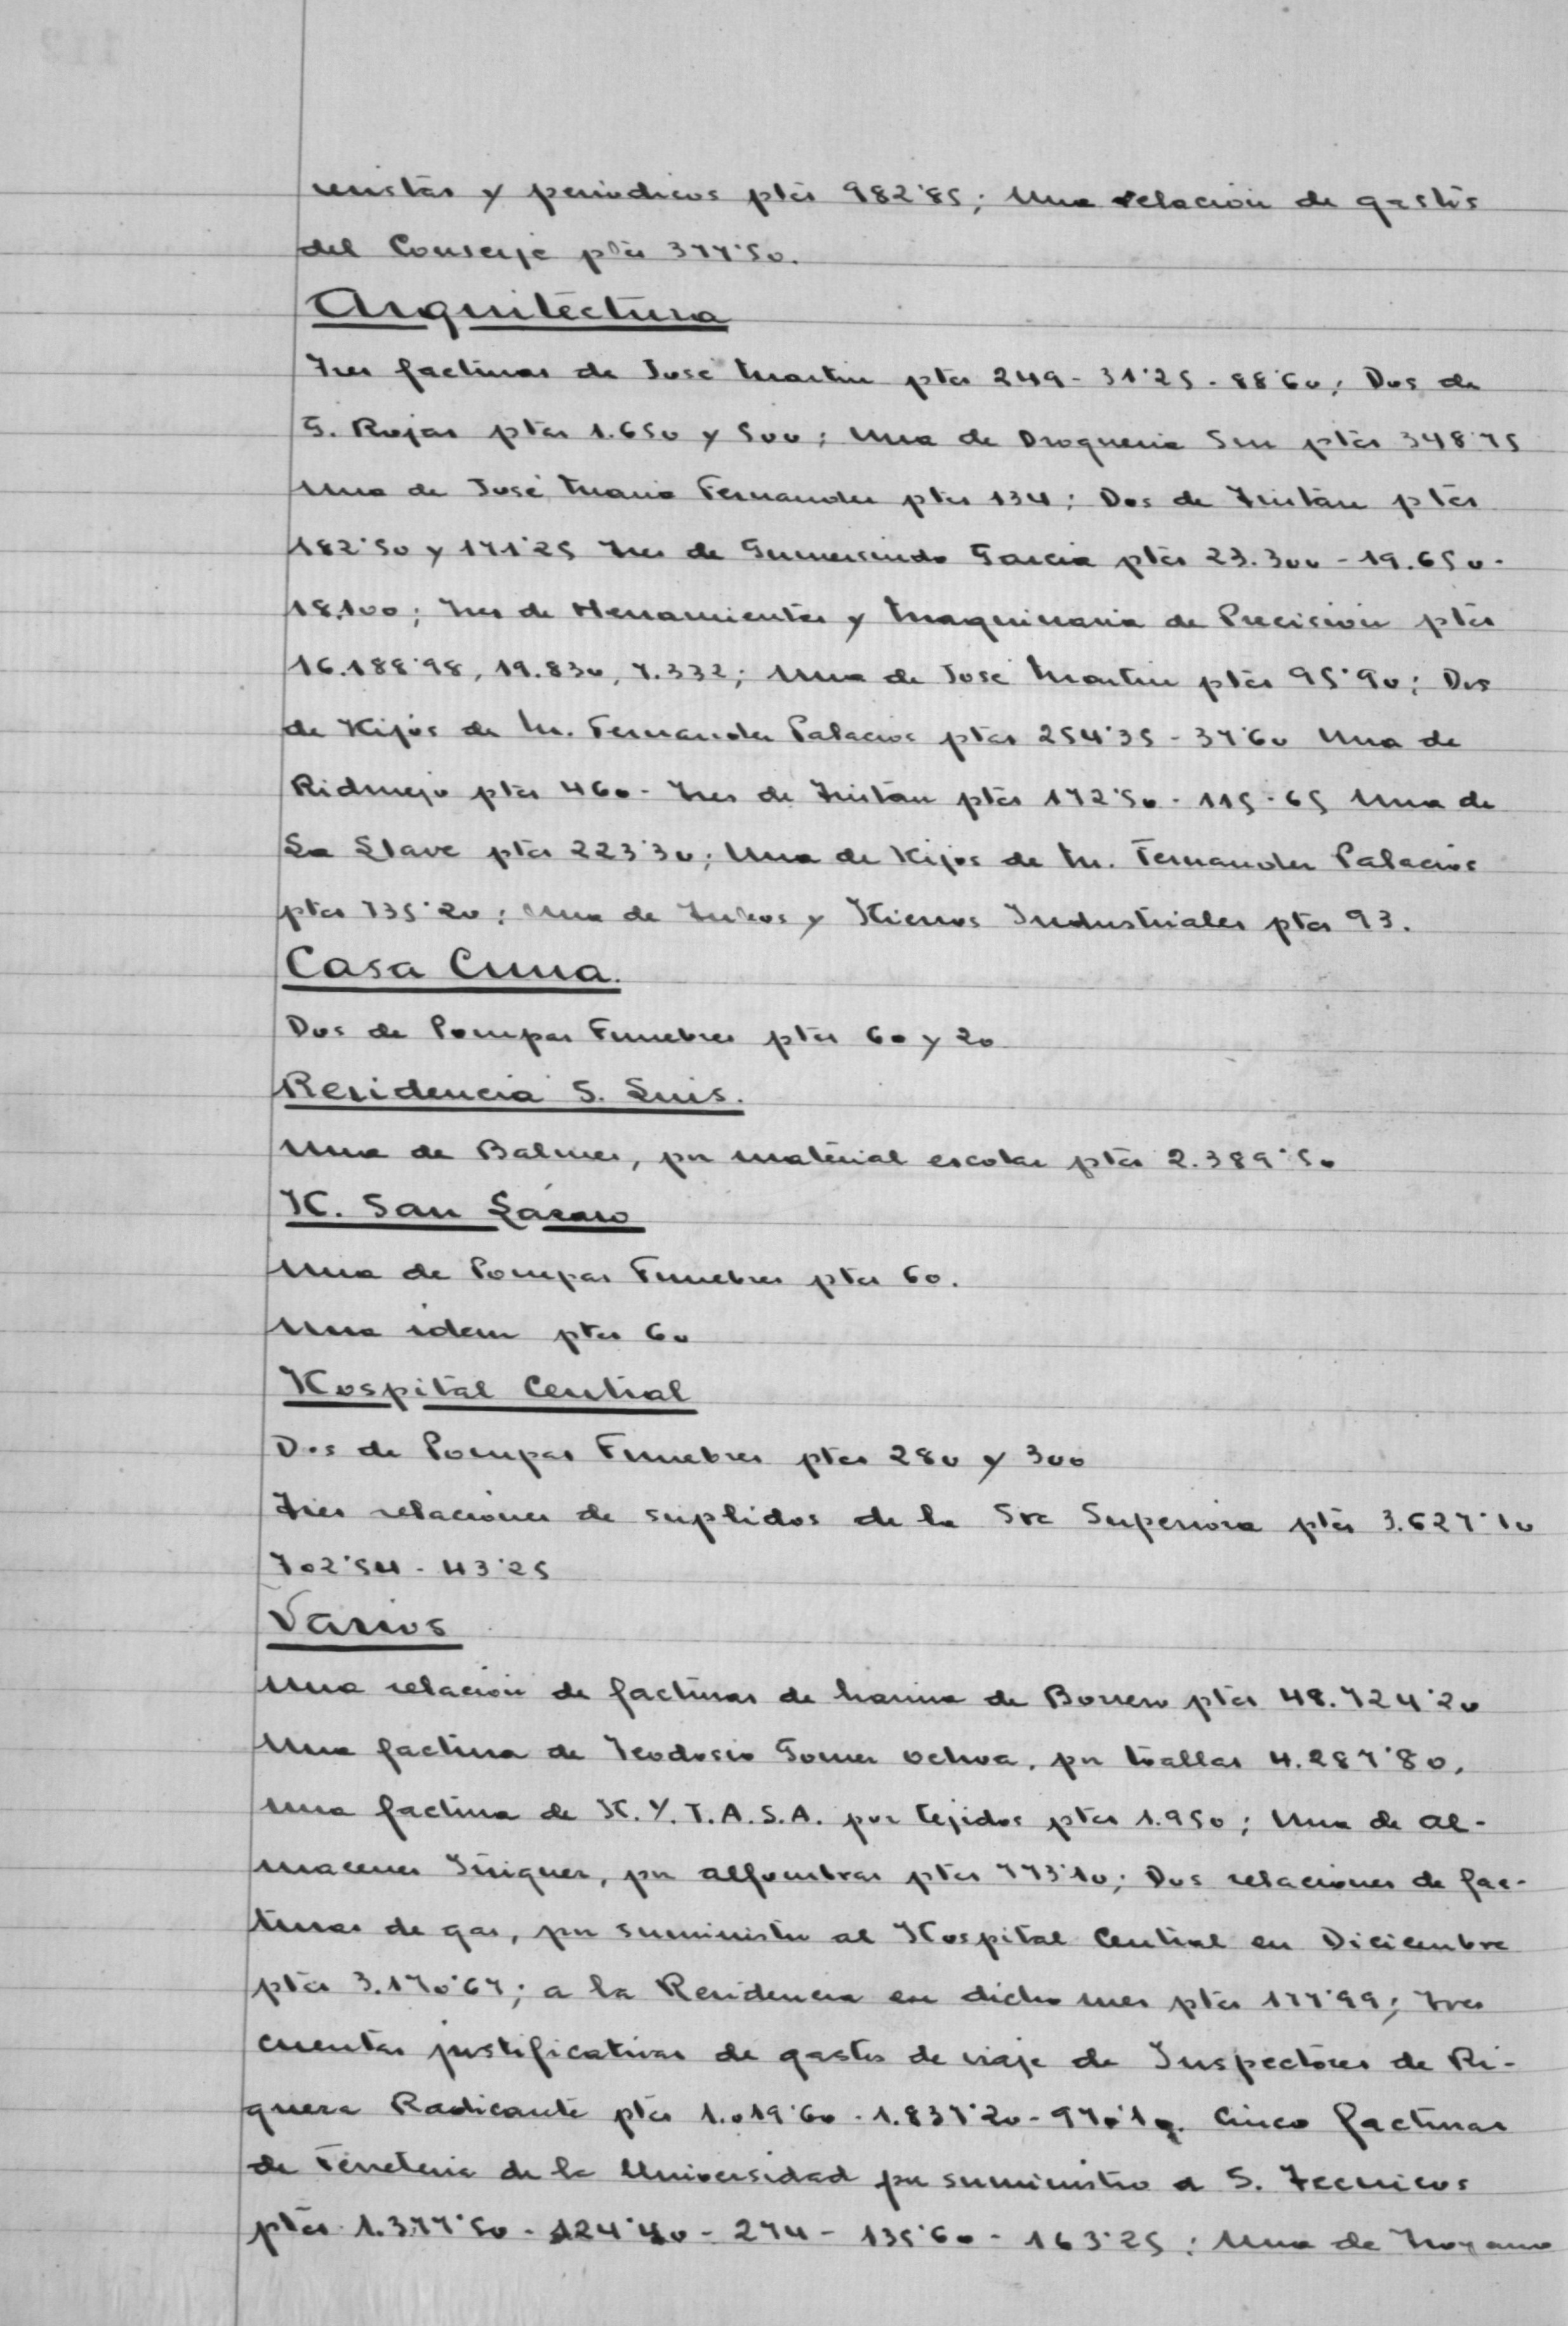 revistas y periodicos ptas 982'85; Una relación de gastos
del Conserje ptas 377'50.
Arquitectura
Tres facturas de José Martin ptas 249 - 31'25 - 88'60; Dos de
G. Rojas ptas 1.650 y 500; Una de Drogueria Sur ptas 348'75
Una de José Maria Fernandez ptas 134; Dos de Tristán ptas
182'50 y 171'25 Tres de Gumersindo Garcia ptas 23.300 - 19.650 -
18.100; Tres de Herramientas y Maquinaria de Precision ptas
16.188'98, 19.830, 7.332; Una de José Martin ptas 95'90; Dos
de Hijos de M. Fernandez Palacios ptas 254'35 - 37'60 Una de
Ridruejo ptas 460 - Tres de Tristan ptas 172'50 - 115 - 65 Una de
La Llave ptas 223'30; Una de Hijos de M. Fernandez Palacios
ptas 735'20; Una de Tubos y Hierros Industriales ptas 93.
Casa Cuna.
Dos de Pompas Funebres ptas 60 y 20
Residencia S. Luis.
Una de Balmes, por material escolar ptas 2.389'50
H. San Lázaro
Una de Pompas Funebres ptas 60.
Una idem ptas 60
Hospital Central
Dos de Pompas Funebres ptas 280 y 300
Tres relaciones de suplidos de la Sra Superiora ptas 3.627'10
702'54 - 43'25
Varios
Una relación de facturas de harina de Borrero ptas 48.724'20
Una factura de Teodosio Gomez Ochoa, por toallas 4.287'80,
una factura de H.Y.T.A.S.A. por tejidos ptas 1.950; Una de Al-
macenes Iñiguez, por alfombras ptas 773'10; Dos relaciones de fac-
turas de gas, por suministro al Hospital Central en Diciembre
ptas 3.170'67; a la Residencia en dicho mes ptas 177'99; Tres
cuentas justificativas de gastos de viaje de Inspectores de Ri-
queza Radicante ptas 1.019'60 - 1.837'20 - Cinco facturas
de Ferreteria de la Universidad por suministro a S. Tecnicos
ptas 1.377'50 - 124'40 - 274 - 135'60 - 163'25; Una de Moyano